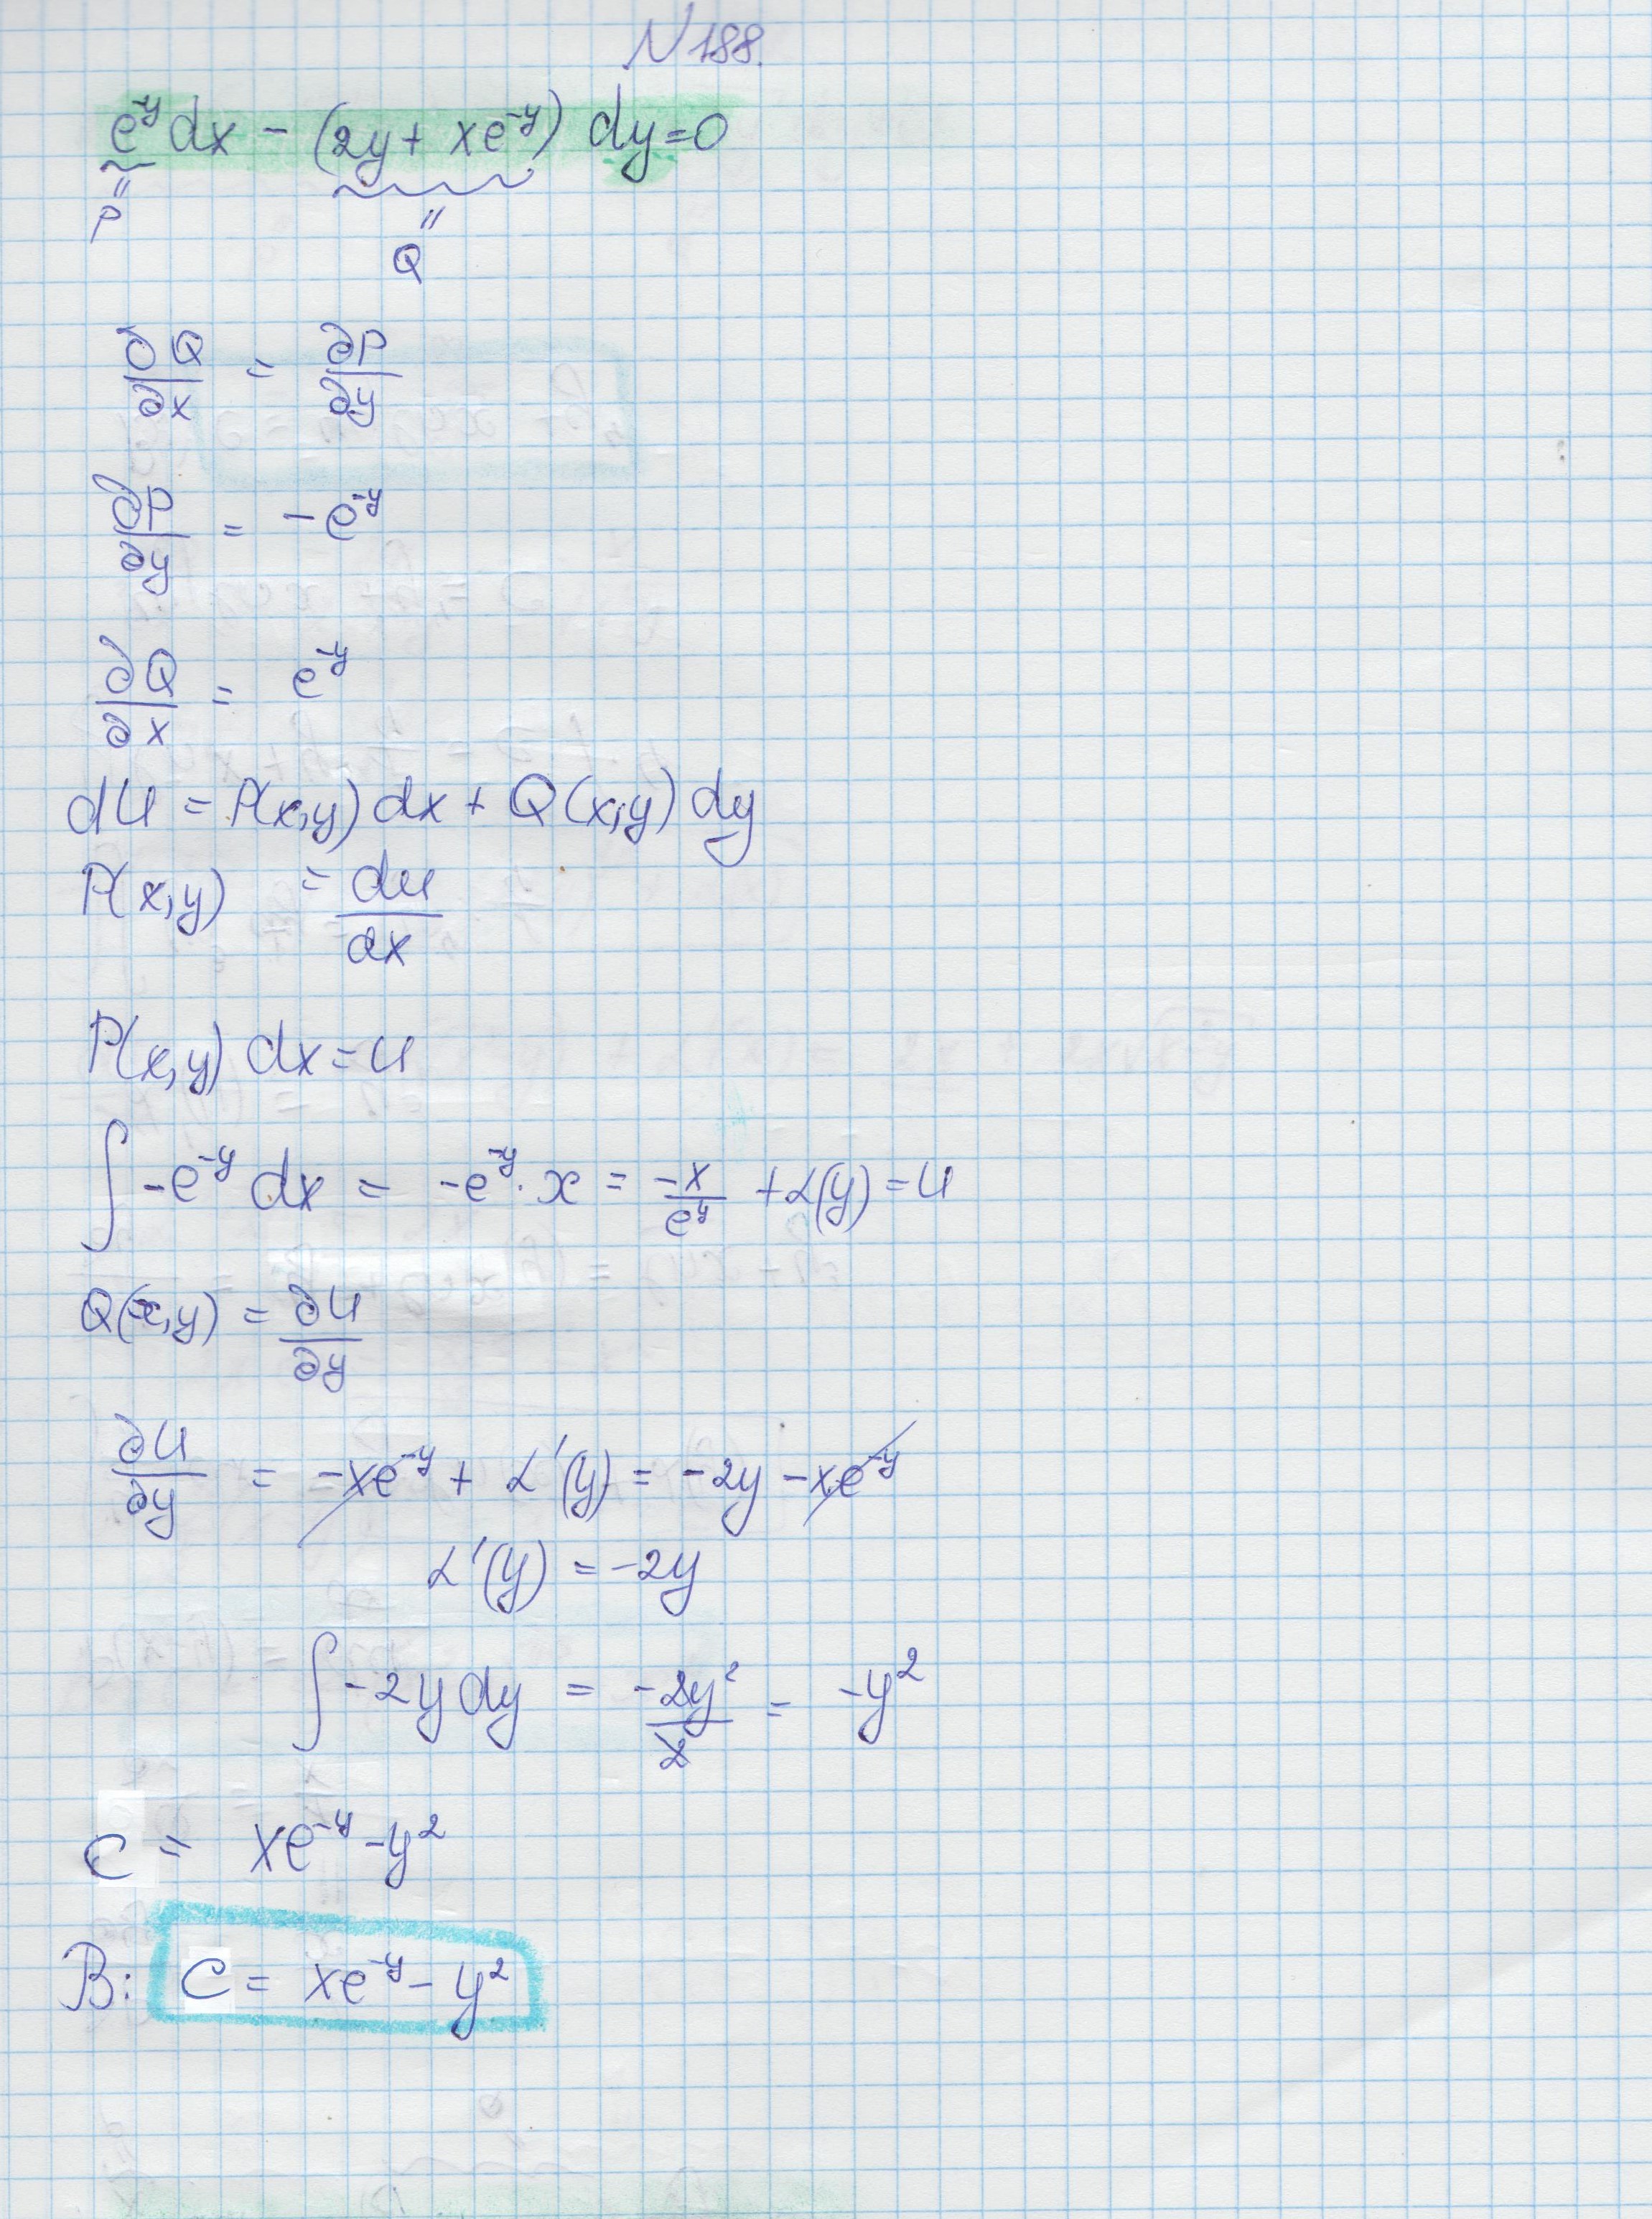 N 188.
e^-y dx - (2y + xe^-y) dy = 0
"
P
"
Q
∂Q/∂x = ∂P/∂y
∂P/∂y = - e^-y
∂Q/∂x = e^-y
du = P(x,y) dx + Q(x,y) dy
P(x,y) = du/dx
P(x,y) dx = u
∫ -e^-y dx = -e^-y · x = -x/e^y + α(y) = u
Q(x,y) = ∂u/∂y
∂u/∂y = -xe^-y + α'(y) = -2y - xe^-y
α'(y) = -2y
∫ -2y dy = -2y²/2 = -y²
C = xe^-y - y²
B: C = xe^-y - y²